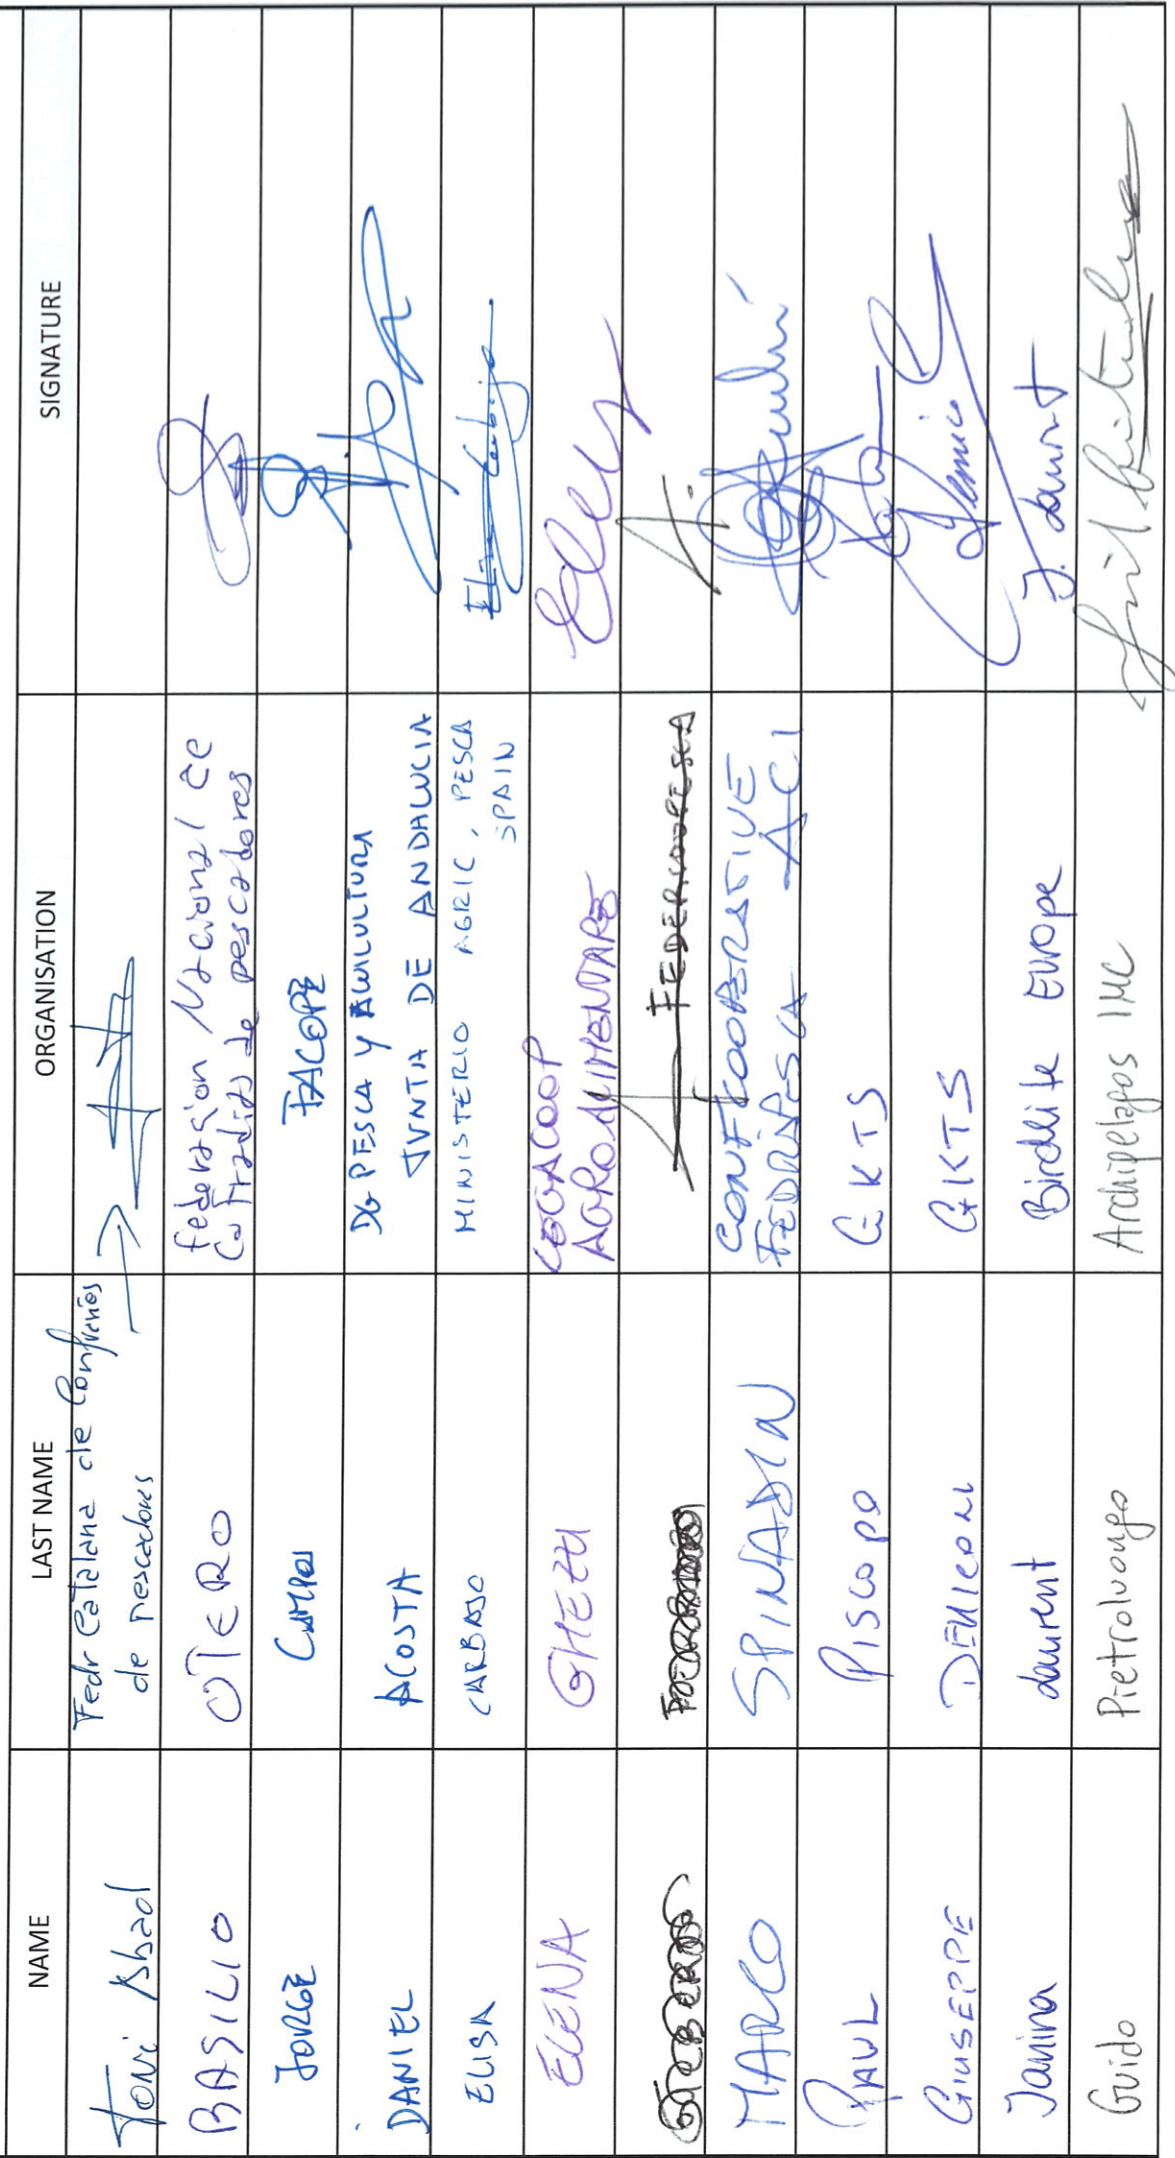 NAME LAST NAME ORGANISATION SIGNATURE
Toni Abad Fedr Catalana de Confraries
de pescadores
BASILIO OTERO Federacion Nacional de
Cofradias de pescadores
JORGE CAMPOS FACOPE
DANIEL ACOSTA DG PESCA Y ACUICULTURA
JUNTA DE ANDALUCIA
ELISA CARBAJO MINISTERIO AGRIC, PESCA
SPAIN
ELENA GHEZZI LEGACOOP
AGROALIMENTARE
FEDERCOOPESCA
MARCO SPINADIN CONFCOOPERATIVE
FEDRPESCA ACI
PAUL PISCOPO GKTS
GIUSEPPE DEMICOLI GKTS
Janina Laurent Birdlife Europe J. Laurent
Guido Pietroluongo Archipelagos IMC